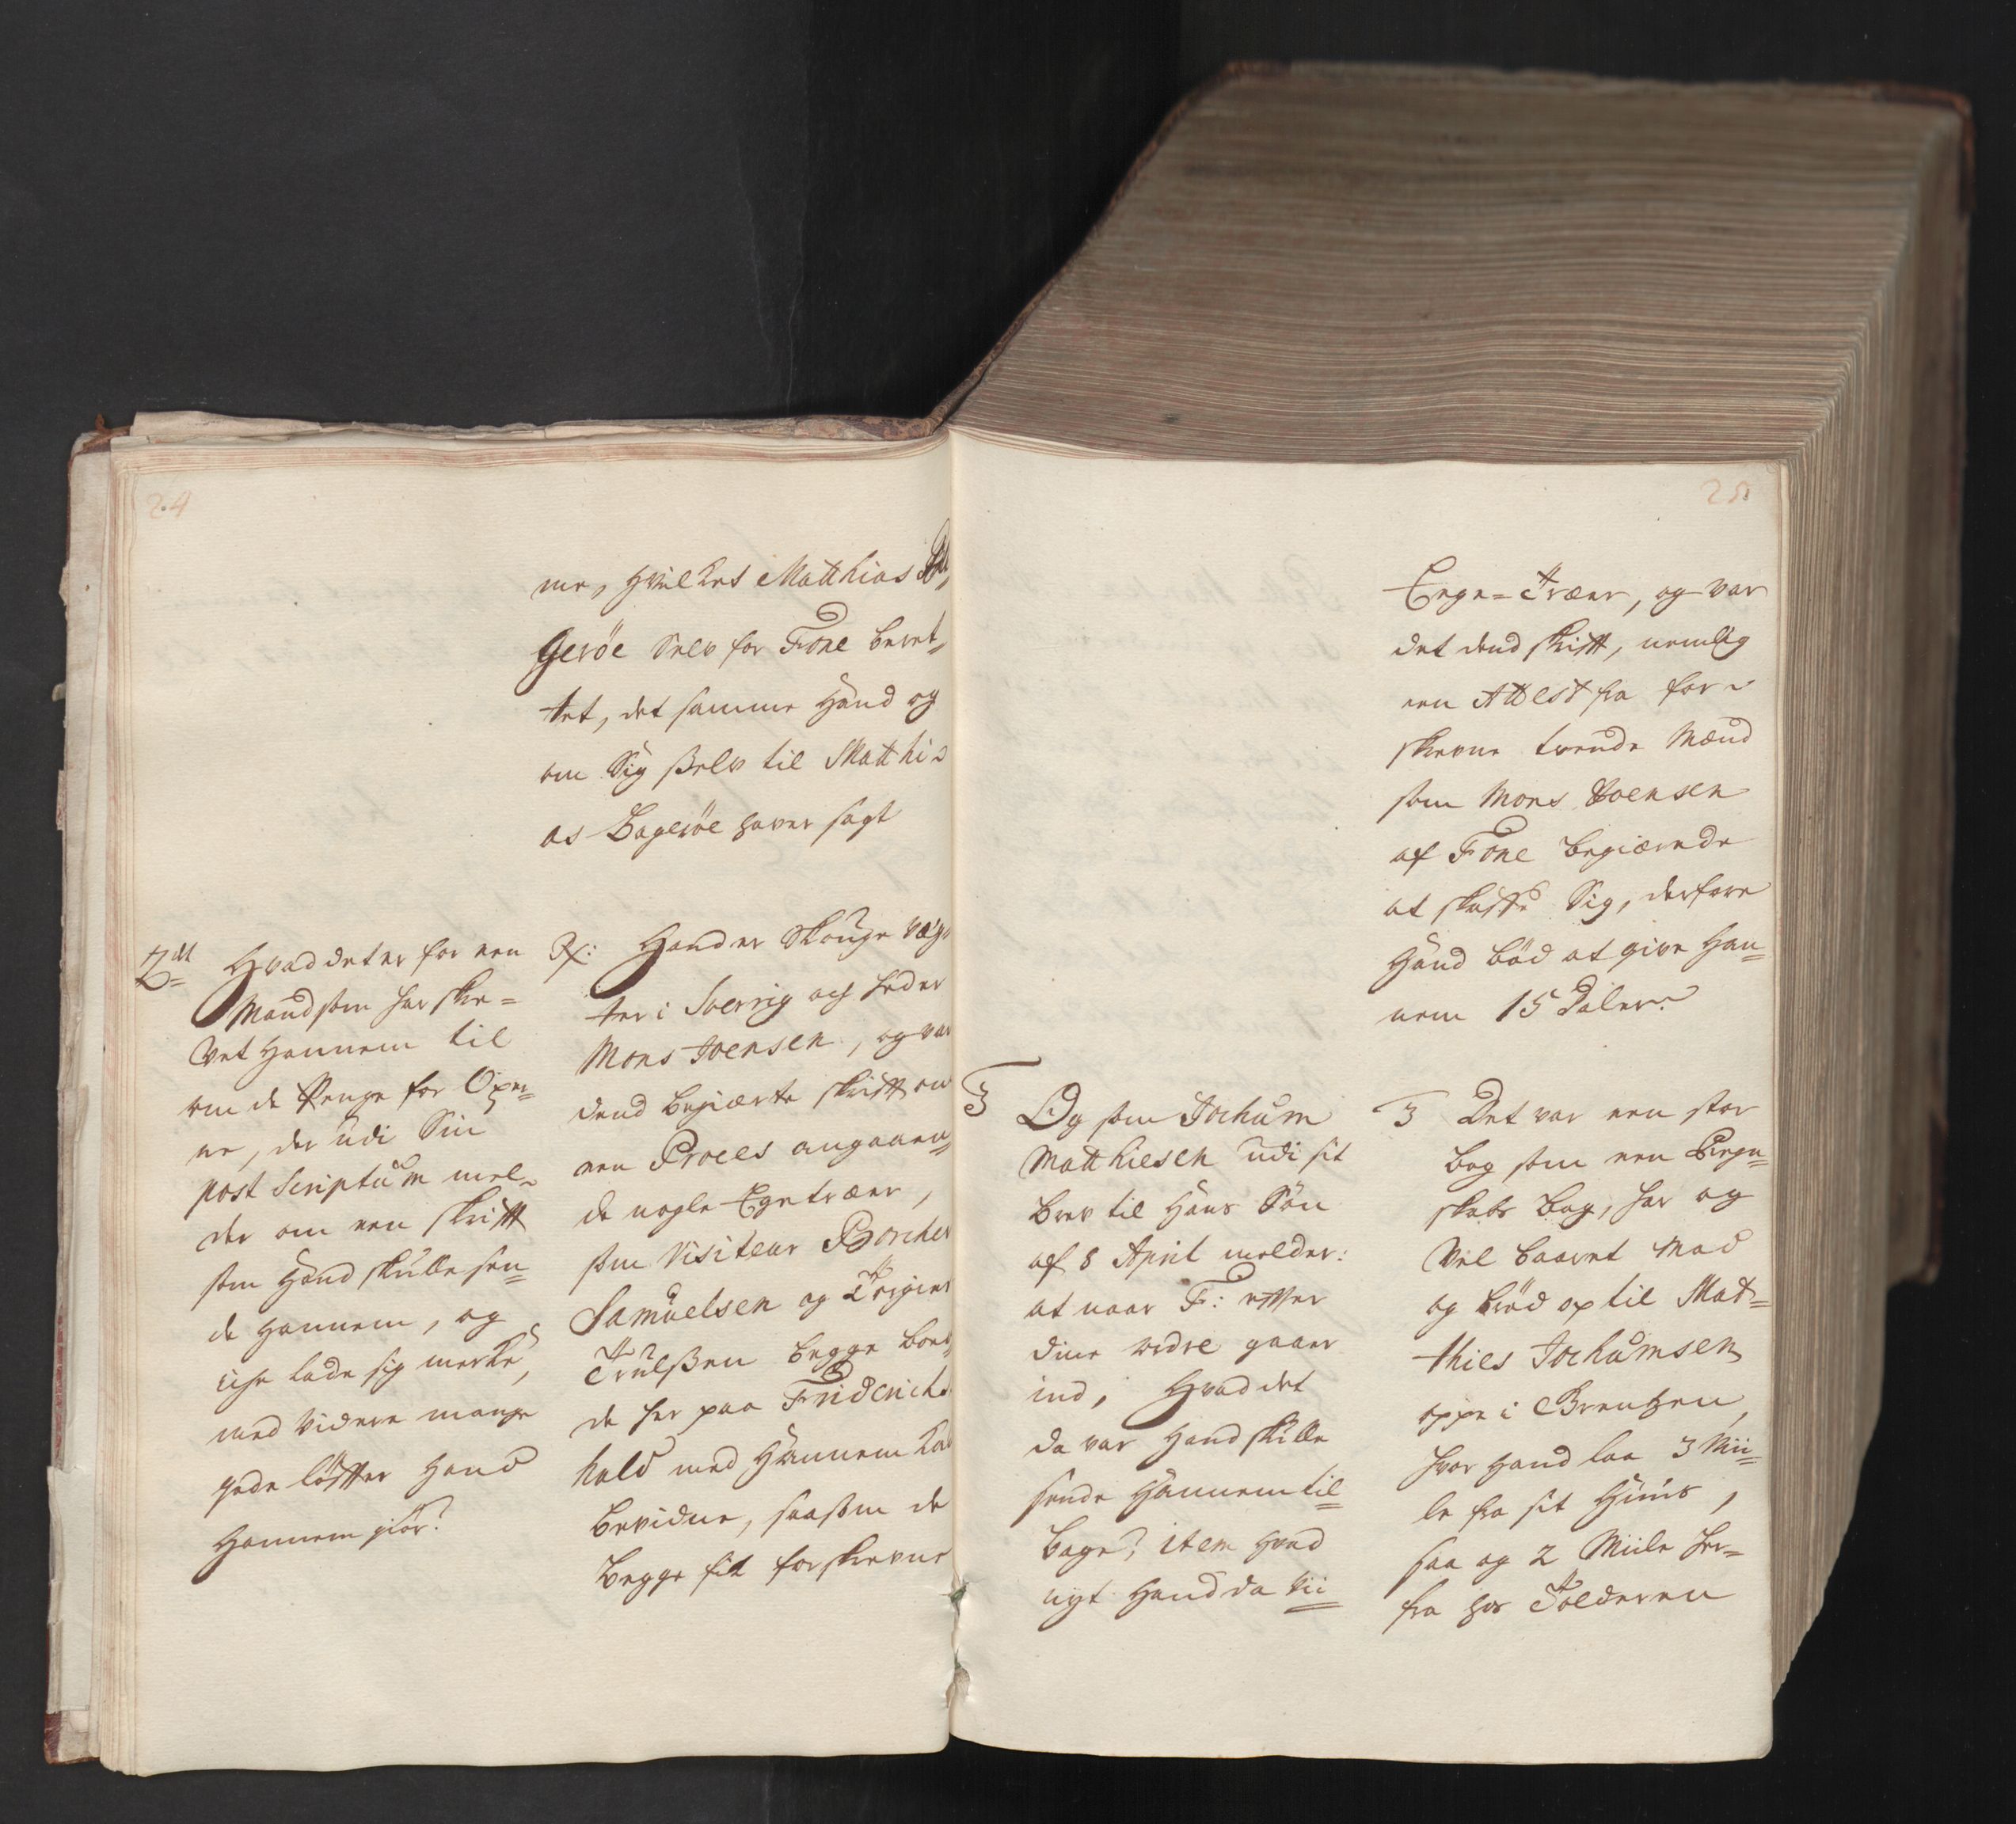 24
me, hvilket Matthias
geröe Selv for Fone beret„
tet, det samme Hand og
om Sig sselv til Matthi-
as Bageröe haver sagt
2det Hvad det er for een
Mand som har skre=
vet Hannem til
om de Penge for Oxer-
ne, der udi Sin
post Scriptum mel-
der om een skrifft
som Hand skulle sen=
de Hannem, og
iche lade sig merke,
med videre mange
gode löffter Hand
Hannem giör?
Rx: Hand er Skouge vog-
ter i Sverrig och heder
Mons Joensen, og var
dend begiærte skrifft om
een Proces angaaen„
de nogle Egetræer,
som Visiteur Borcher
Samuelsen og Torgier
Trulssen begge boen-
de her paa Friderichs
hald med Hannem kand
bevidne, saasom de
begge fik forskrevne
25
Eege-Træer, og var
det dend skrifft, nemlig
een Attest fra for-
skrevne tvende Mænd
som Mons Joensen
af Fone begiærede
at skaffe Sig, derfore
Hand böd at give Han=
nem 15 Daler.
3 Og som Jochum
Matthiesen udi sit
brev til Hans Sön
af 8 April melder:
at naar F: effter
dine ordre gaaer
ind, Hvad det
da var Hand skulle
sende Hannem til=
bage? item Hvad
nyt Hand da vii
3 Det var een stor
bog som een Regn=
skabs bog, har og
vel baaret Mad
og bröd op til Mat=
thies Jochumsen
oppe i Grentzen,
hvor Hand laa 3 Mii=
le fra sit Huus,
saa og 2 Miile her=
fra hos Tolderen